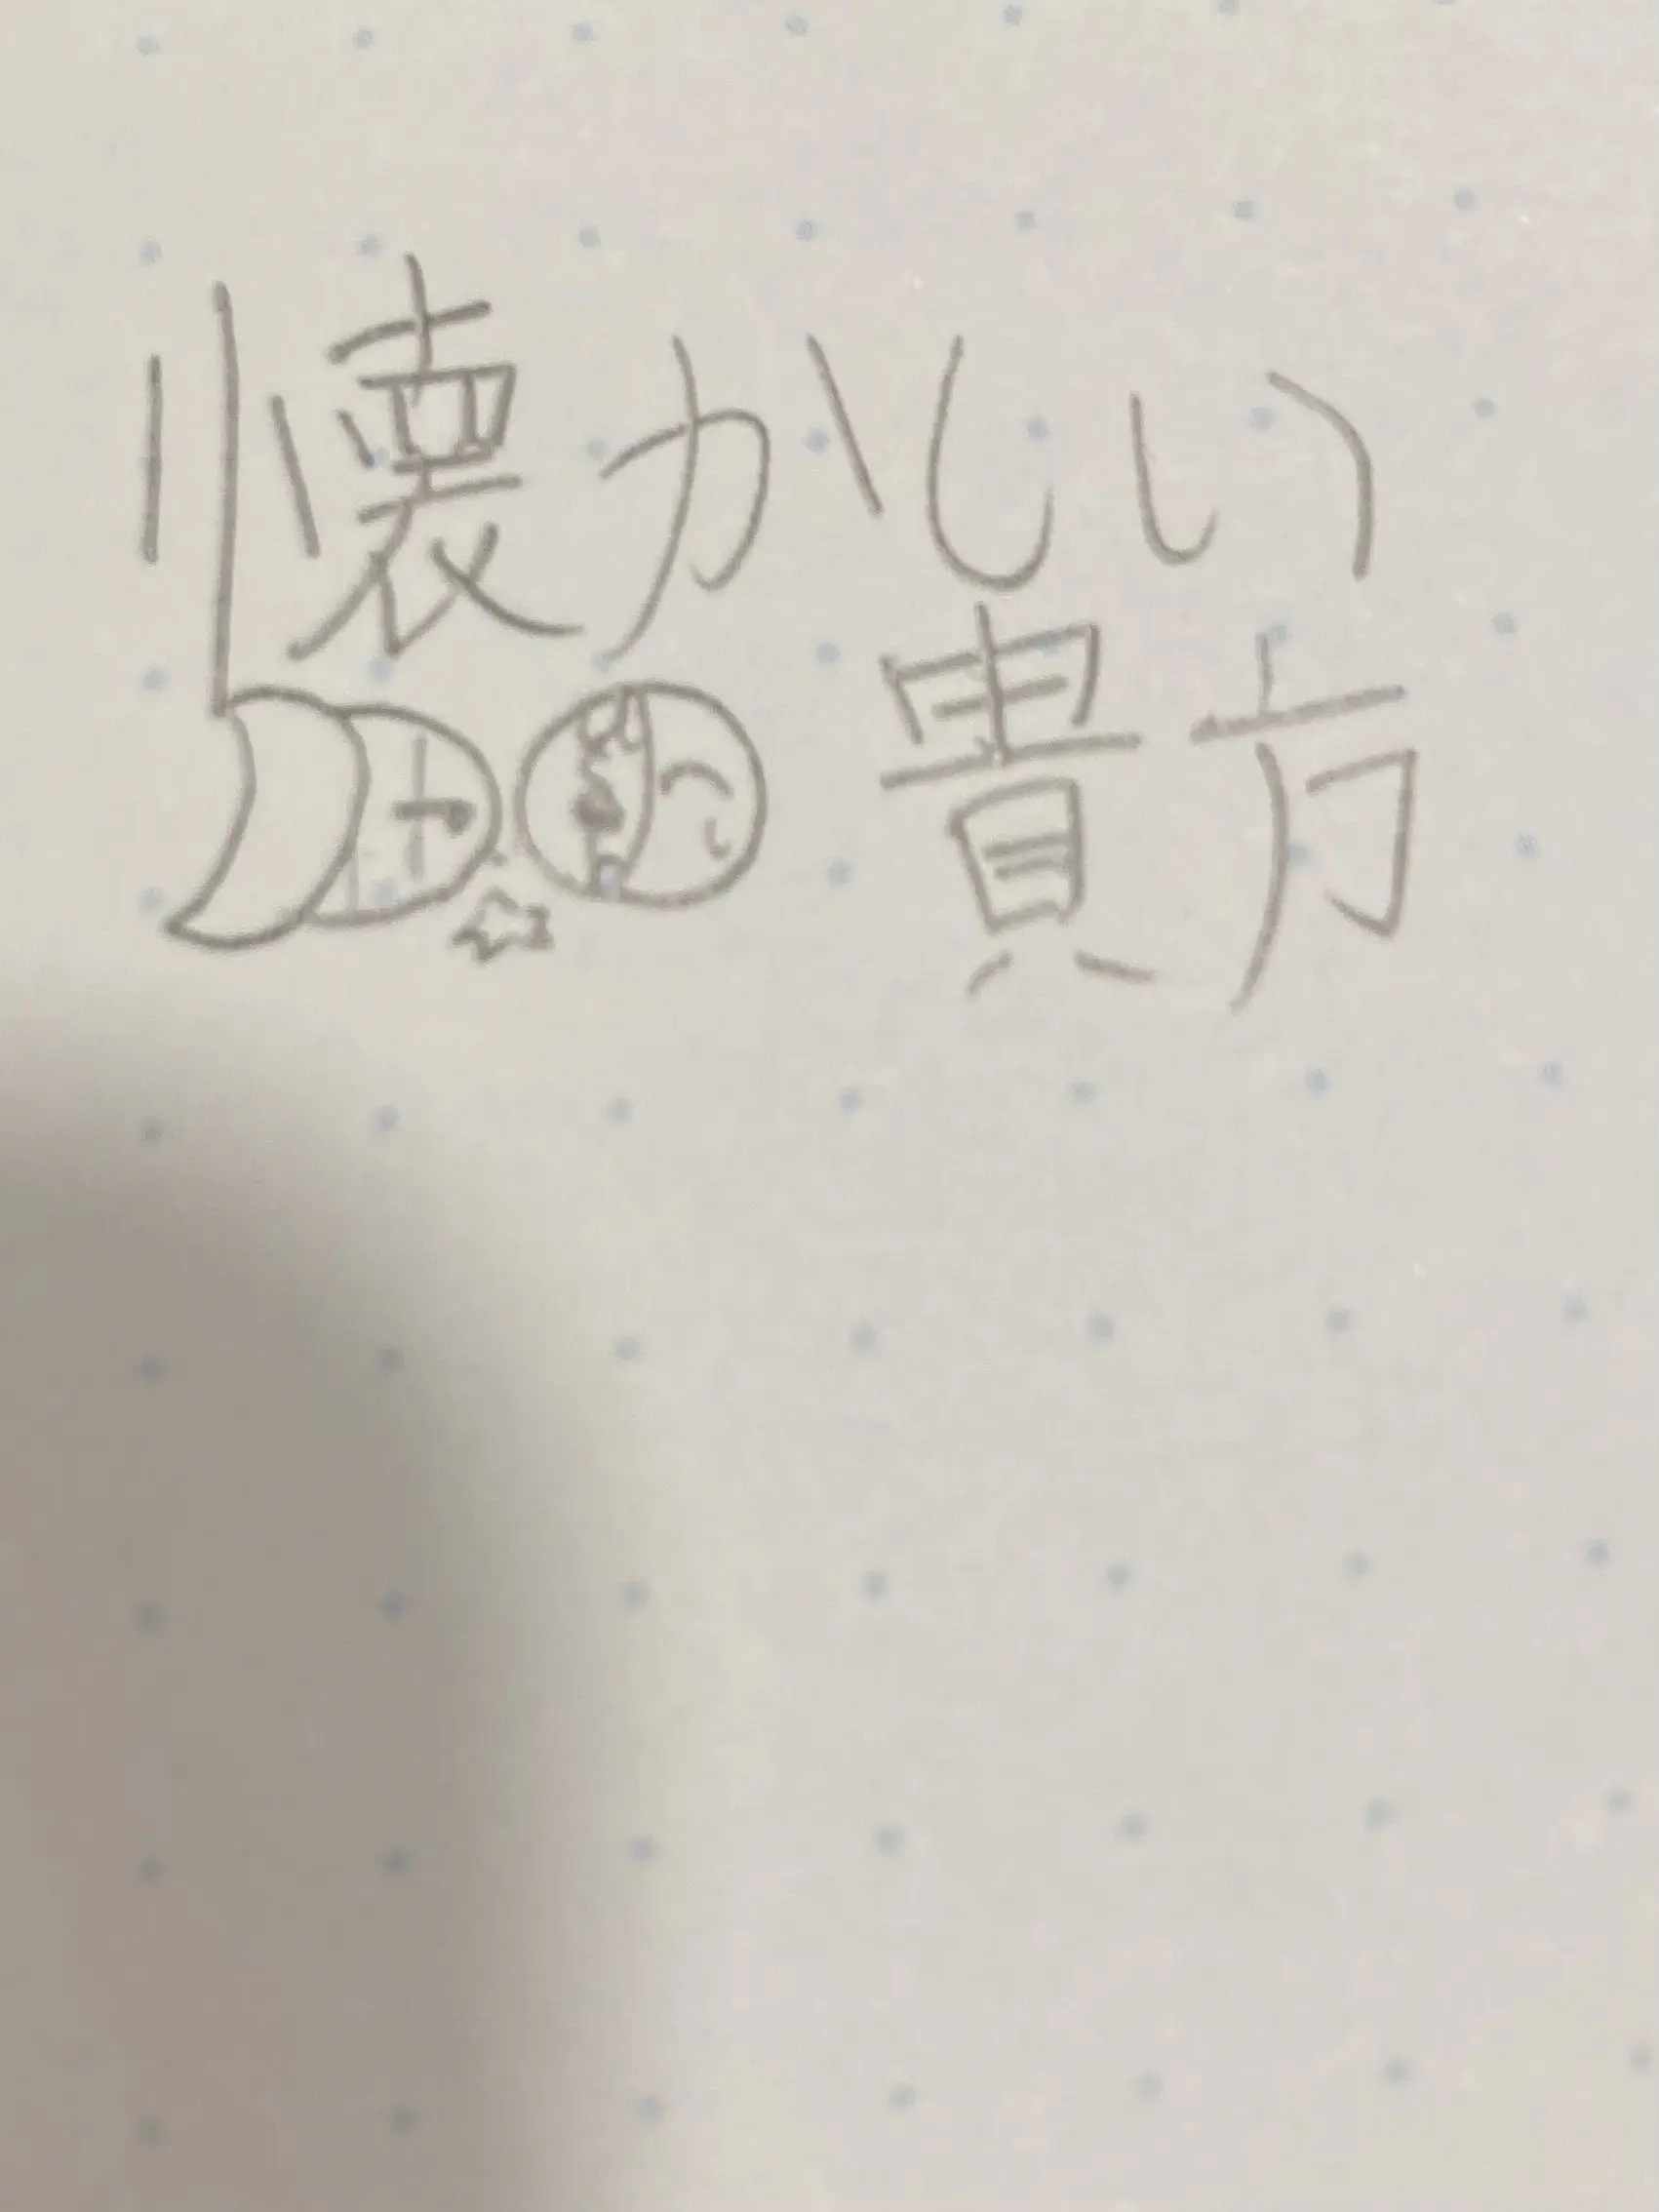 懐かしい
貴方